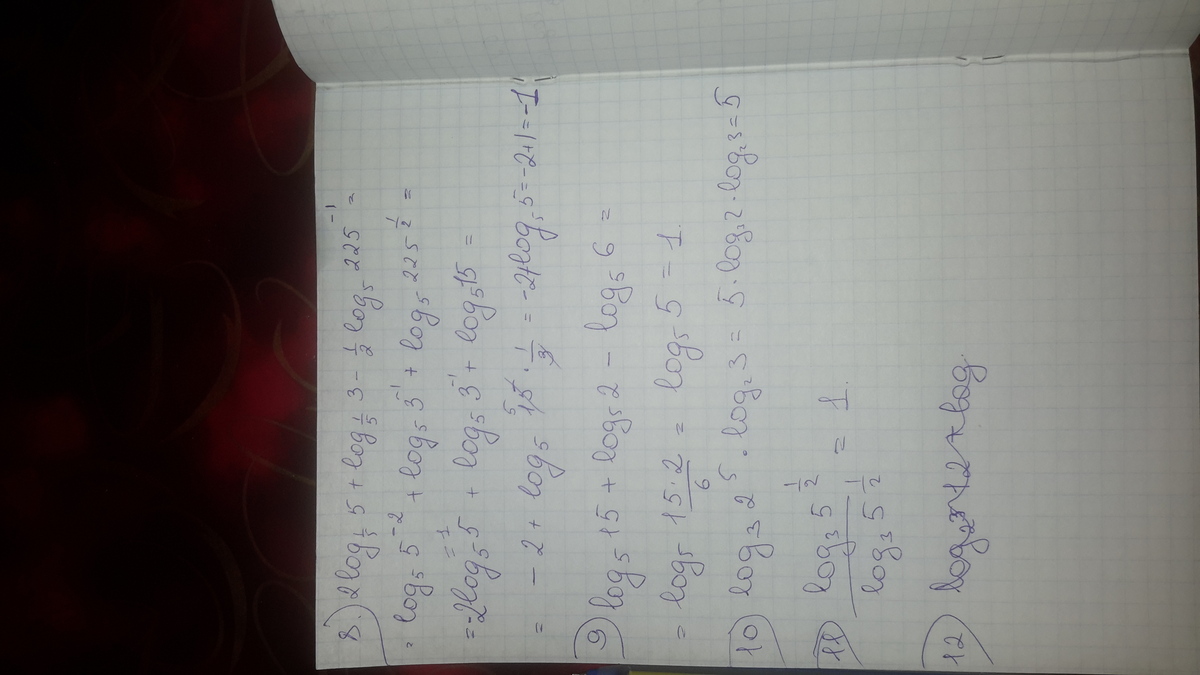 8.) 2log_{1/5} 5 + log_{1/5} 3 - 1/2 log_5 225^{-1} =
= log_5 5^{-2} + log_5 3^{-1} + log_5 225^{1/2} =
= -2log_5 5^{=1} + log_5 3^{-1} + log_5 15 =
= - 2 + log_5 15^5 · 1/3 = -2 + log_5 5 = -2 + 1 = -1
9) log_5 15 + log_5 2 - log_5 6 =
= log_5 (15·2)/6 = log_5 5 = 1.
10) log_3 2^5 · log_2 3 = 5 · log_3 2 · log_2 3 = 5
11) (log_3 5^{1/2})/(log_3 5^{1/2}) = 1.
12)